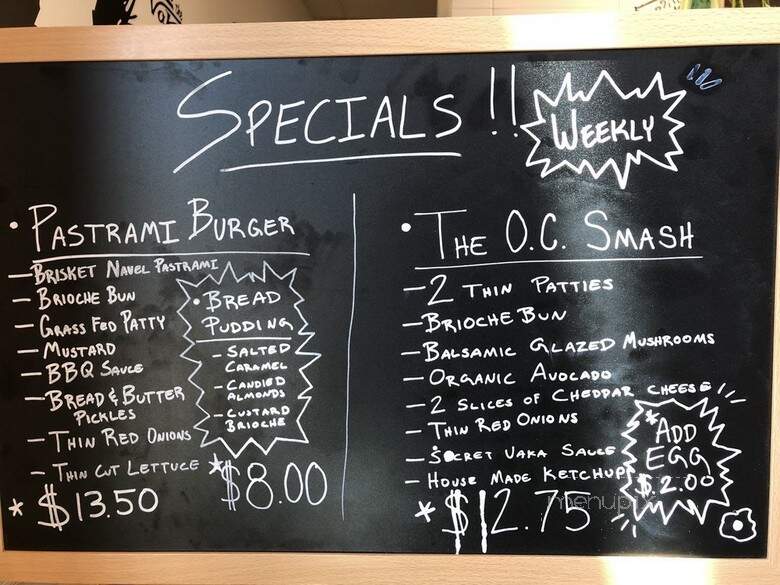 SPECIALS !!
WEEKLY
• PASTRAMI BURGER
— BRISKET NAVEL PASTRAMI
— BRIOCHE BUN
— GRASS FED PATTY
— MUSTARD
— BBQ SAUCE
— BREAD & BUTTER
PICKLES
— THIN RED ONIONS
— THIN CUT LETTUCE
* $13.50
• BREAD
PUDDING
- SALTED
CARAMEL
- CANDIED
ALMONDS
- CUSTARD
BRIOCHE
* $8.00
• THE O.C. SMASH
— 2 THIN PATTIES
— BRIOCHE BUN
— BALSAMIC GLAZED MUSHROOMS
— ORGANIC AVOCADO
— 2 SLICES OF CHEDDAR CHEESE
— THIN RED ONIONS
— SECRET VAKA SAUCE
— HOUSE MADE KETCHUP
* $12.75
* ADD
EGG
$2.00